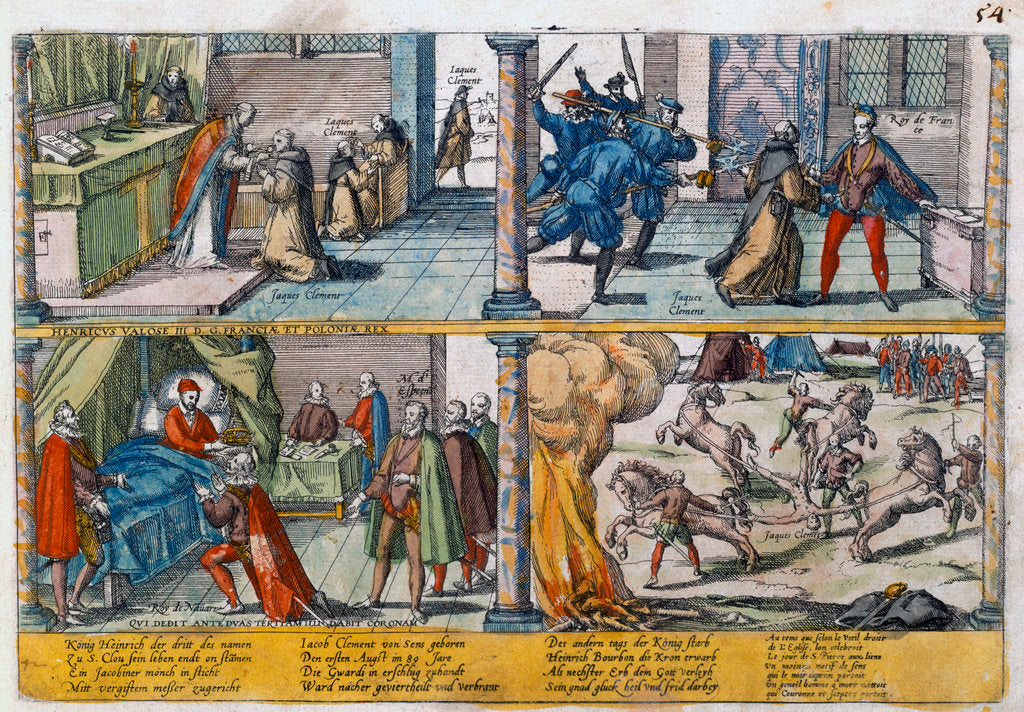 54
Iaques
Clement
Iaques
Clement
Jaques Clement
Roy de Fran
ce
Jaques
Clement
HENRICVS VALOSE III D. G. FRANCIÆ ET POLONIÆ REX
Roy de Nauarre
QVI DEDIT ANTE DVAS DABIT CORONAM
Jaques Clemēt
König Heinrich der dritt des namen
Zu S. Clou sein leben endt on stämen
Ein Jacobiner mönch in sticht
Mitt vergiftem messer zugericht
Iacob Clement von Sens geboren
Den ersten Augst im 89 Jare
Die Gwardi in erschlug zuhandt
Ward nacher geviertheilt vnd verbrant
Des andern tags der König starb
Heinrich Bourbon die Kron erwarb
Als nechster Erb dem Gott verleyh
Sein gnad glück heil vnd frid darbey
Au tems que selon le vieil droict
de L'Eglise, lon celebroit
Le jour de S. Pierre aux liens
Un moine natif de sens
qui le noir capeau portoit
Un genēil homme à mort mettoit
qui Couronne et sceptre portoit.